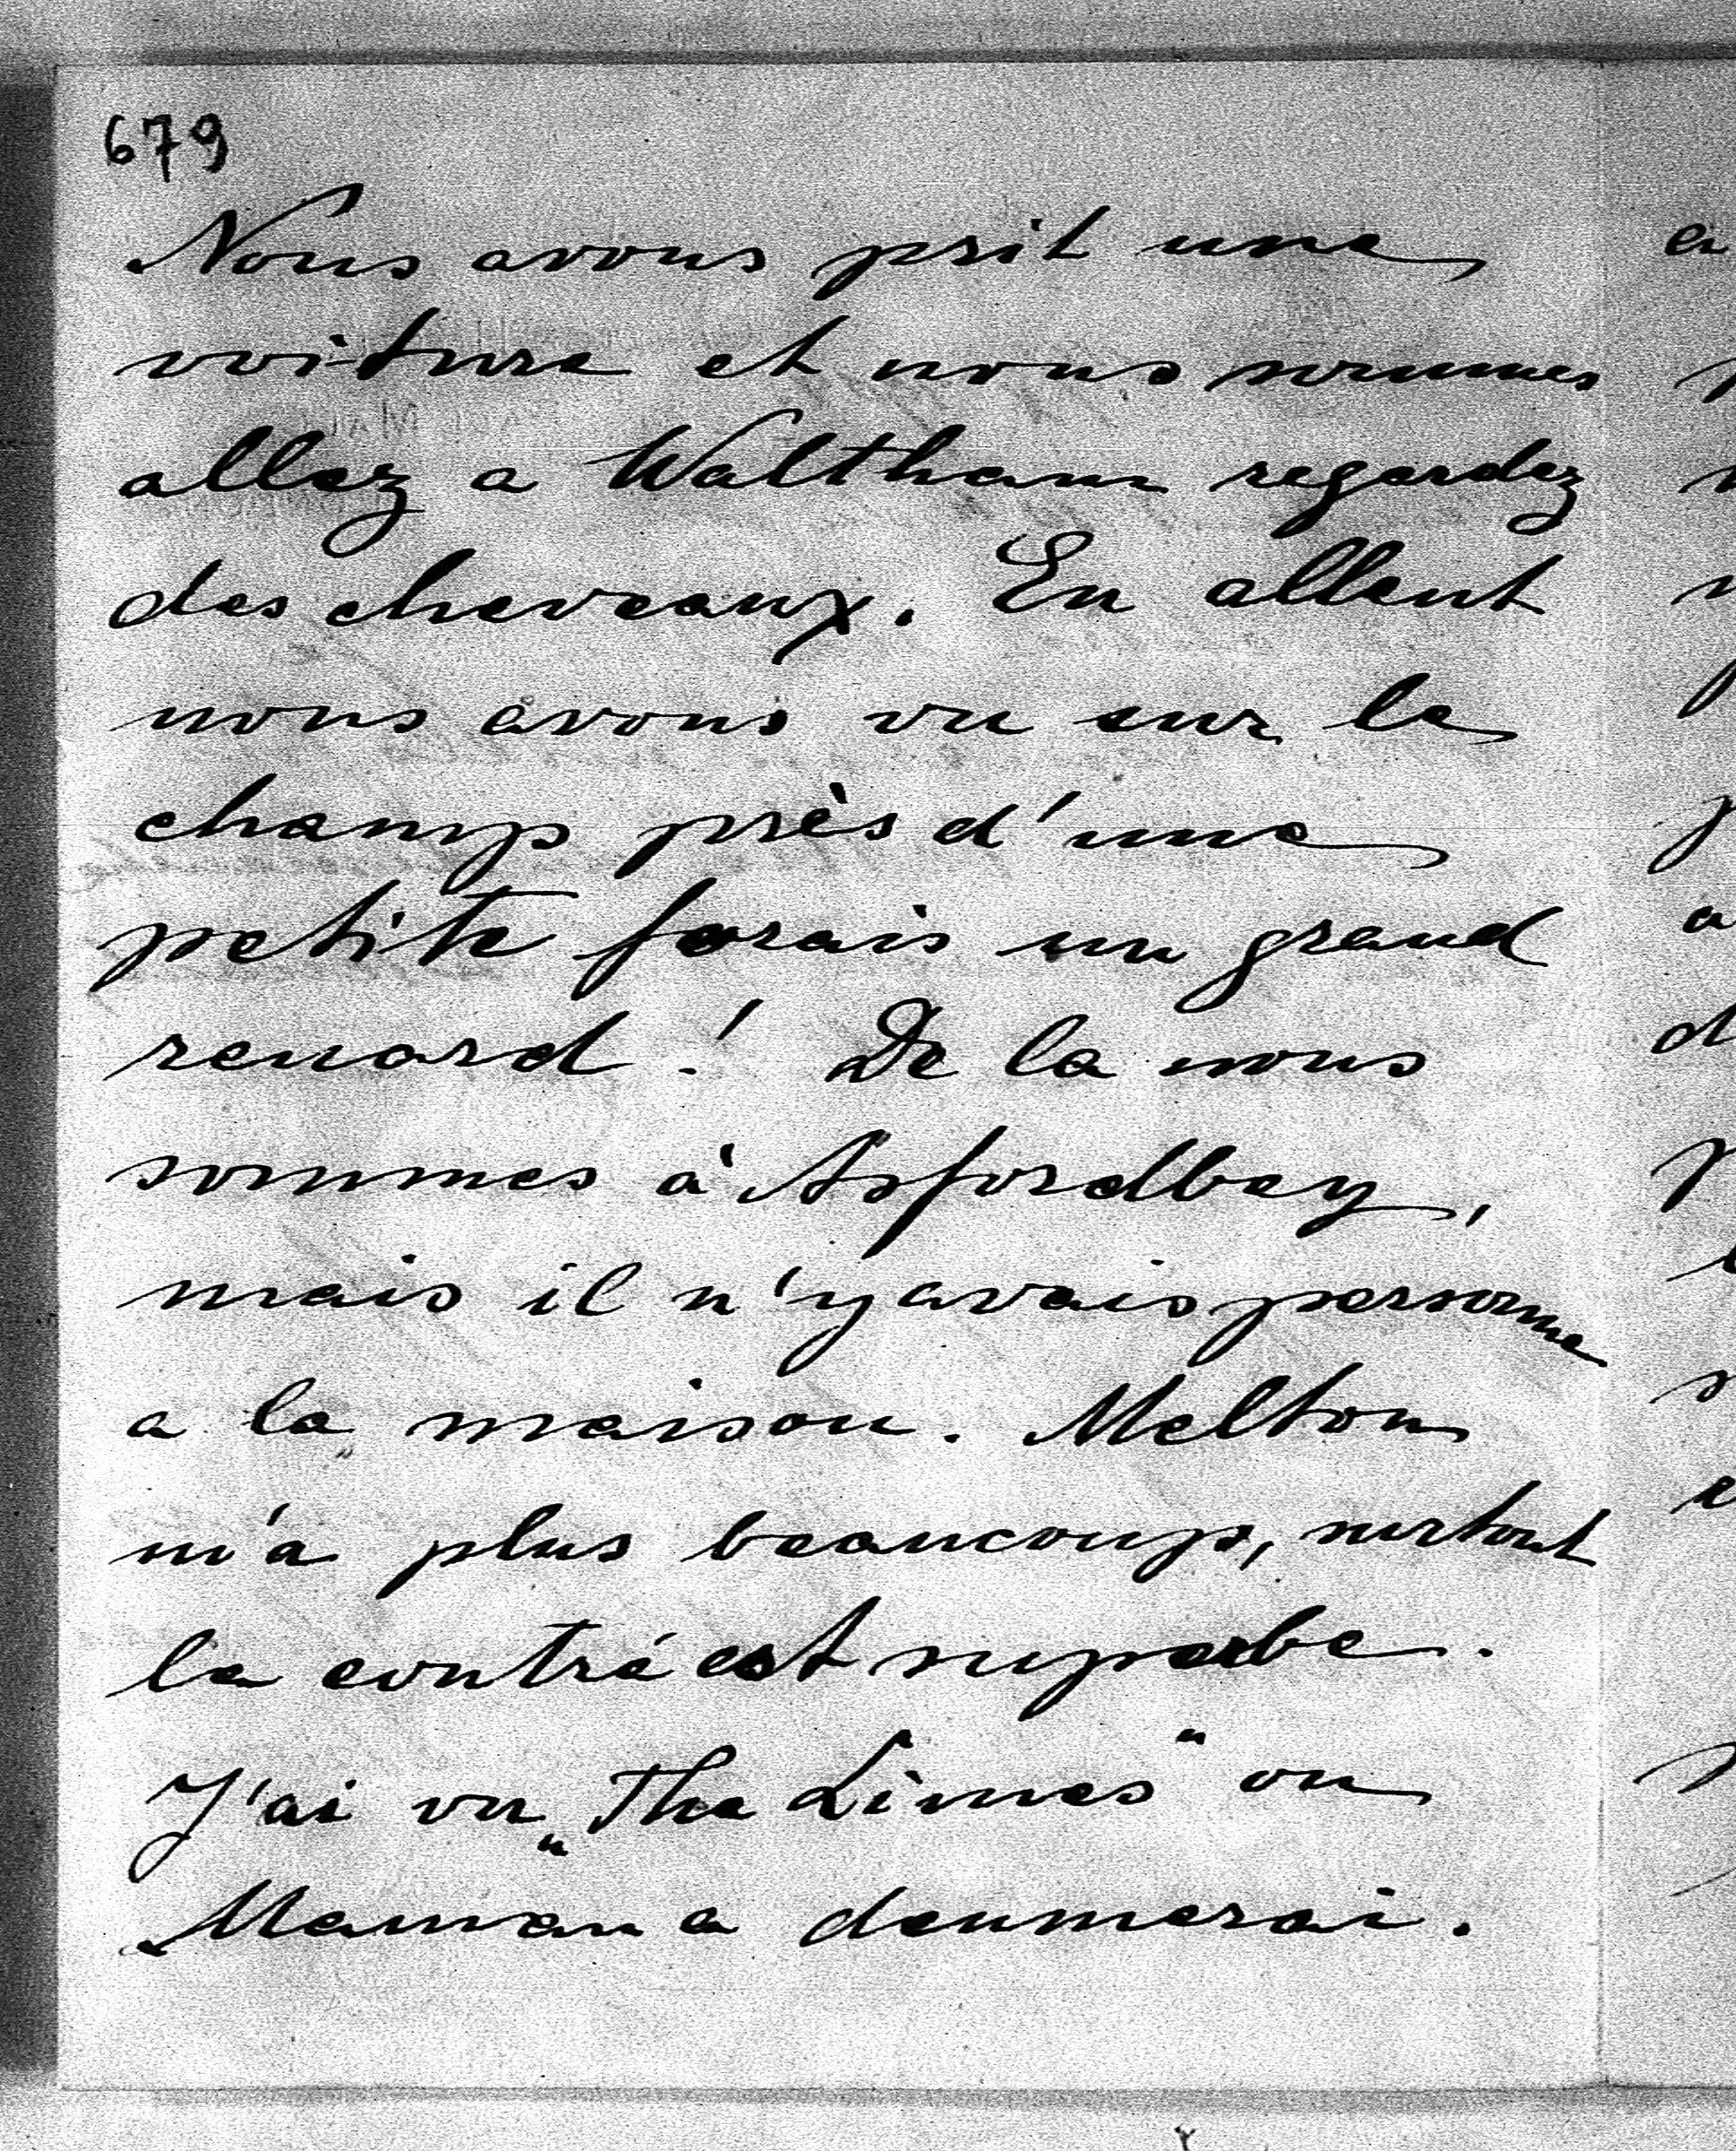 679
Nous avons prit une
voiture et nous sommes
allez a Waltham regardez
des cheveaux. En allent
nous avons vu sur le
champ près d'une
petite forais un grand
renard! De la nous
sommes à Asfordbey,
mais il n'y avais personne
a la maison. Melton
m'a plus beaucoup, surtout
la contré est superbe.
J'ai vu „The Limes" ou
Maman a deumerai.